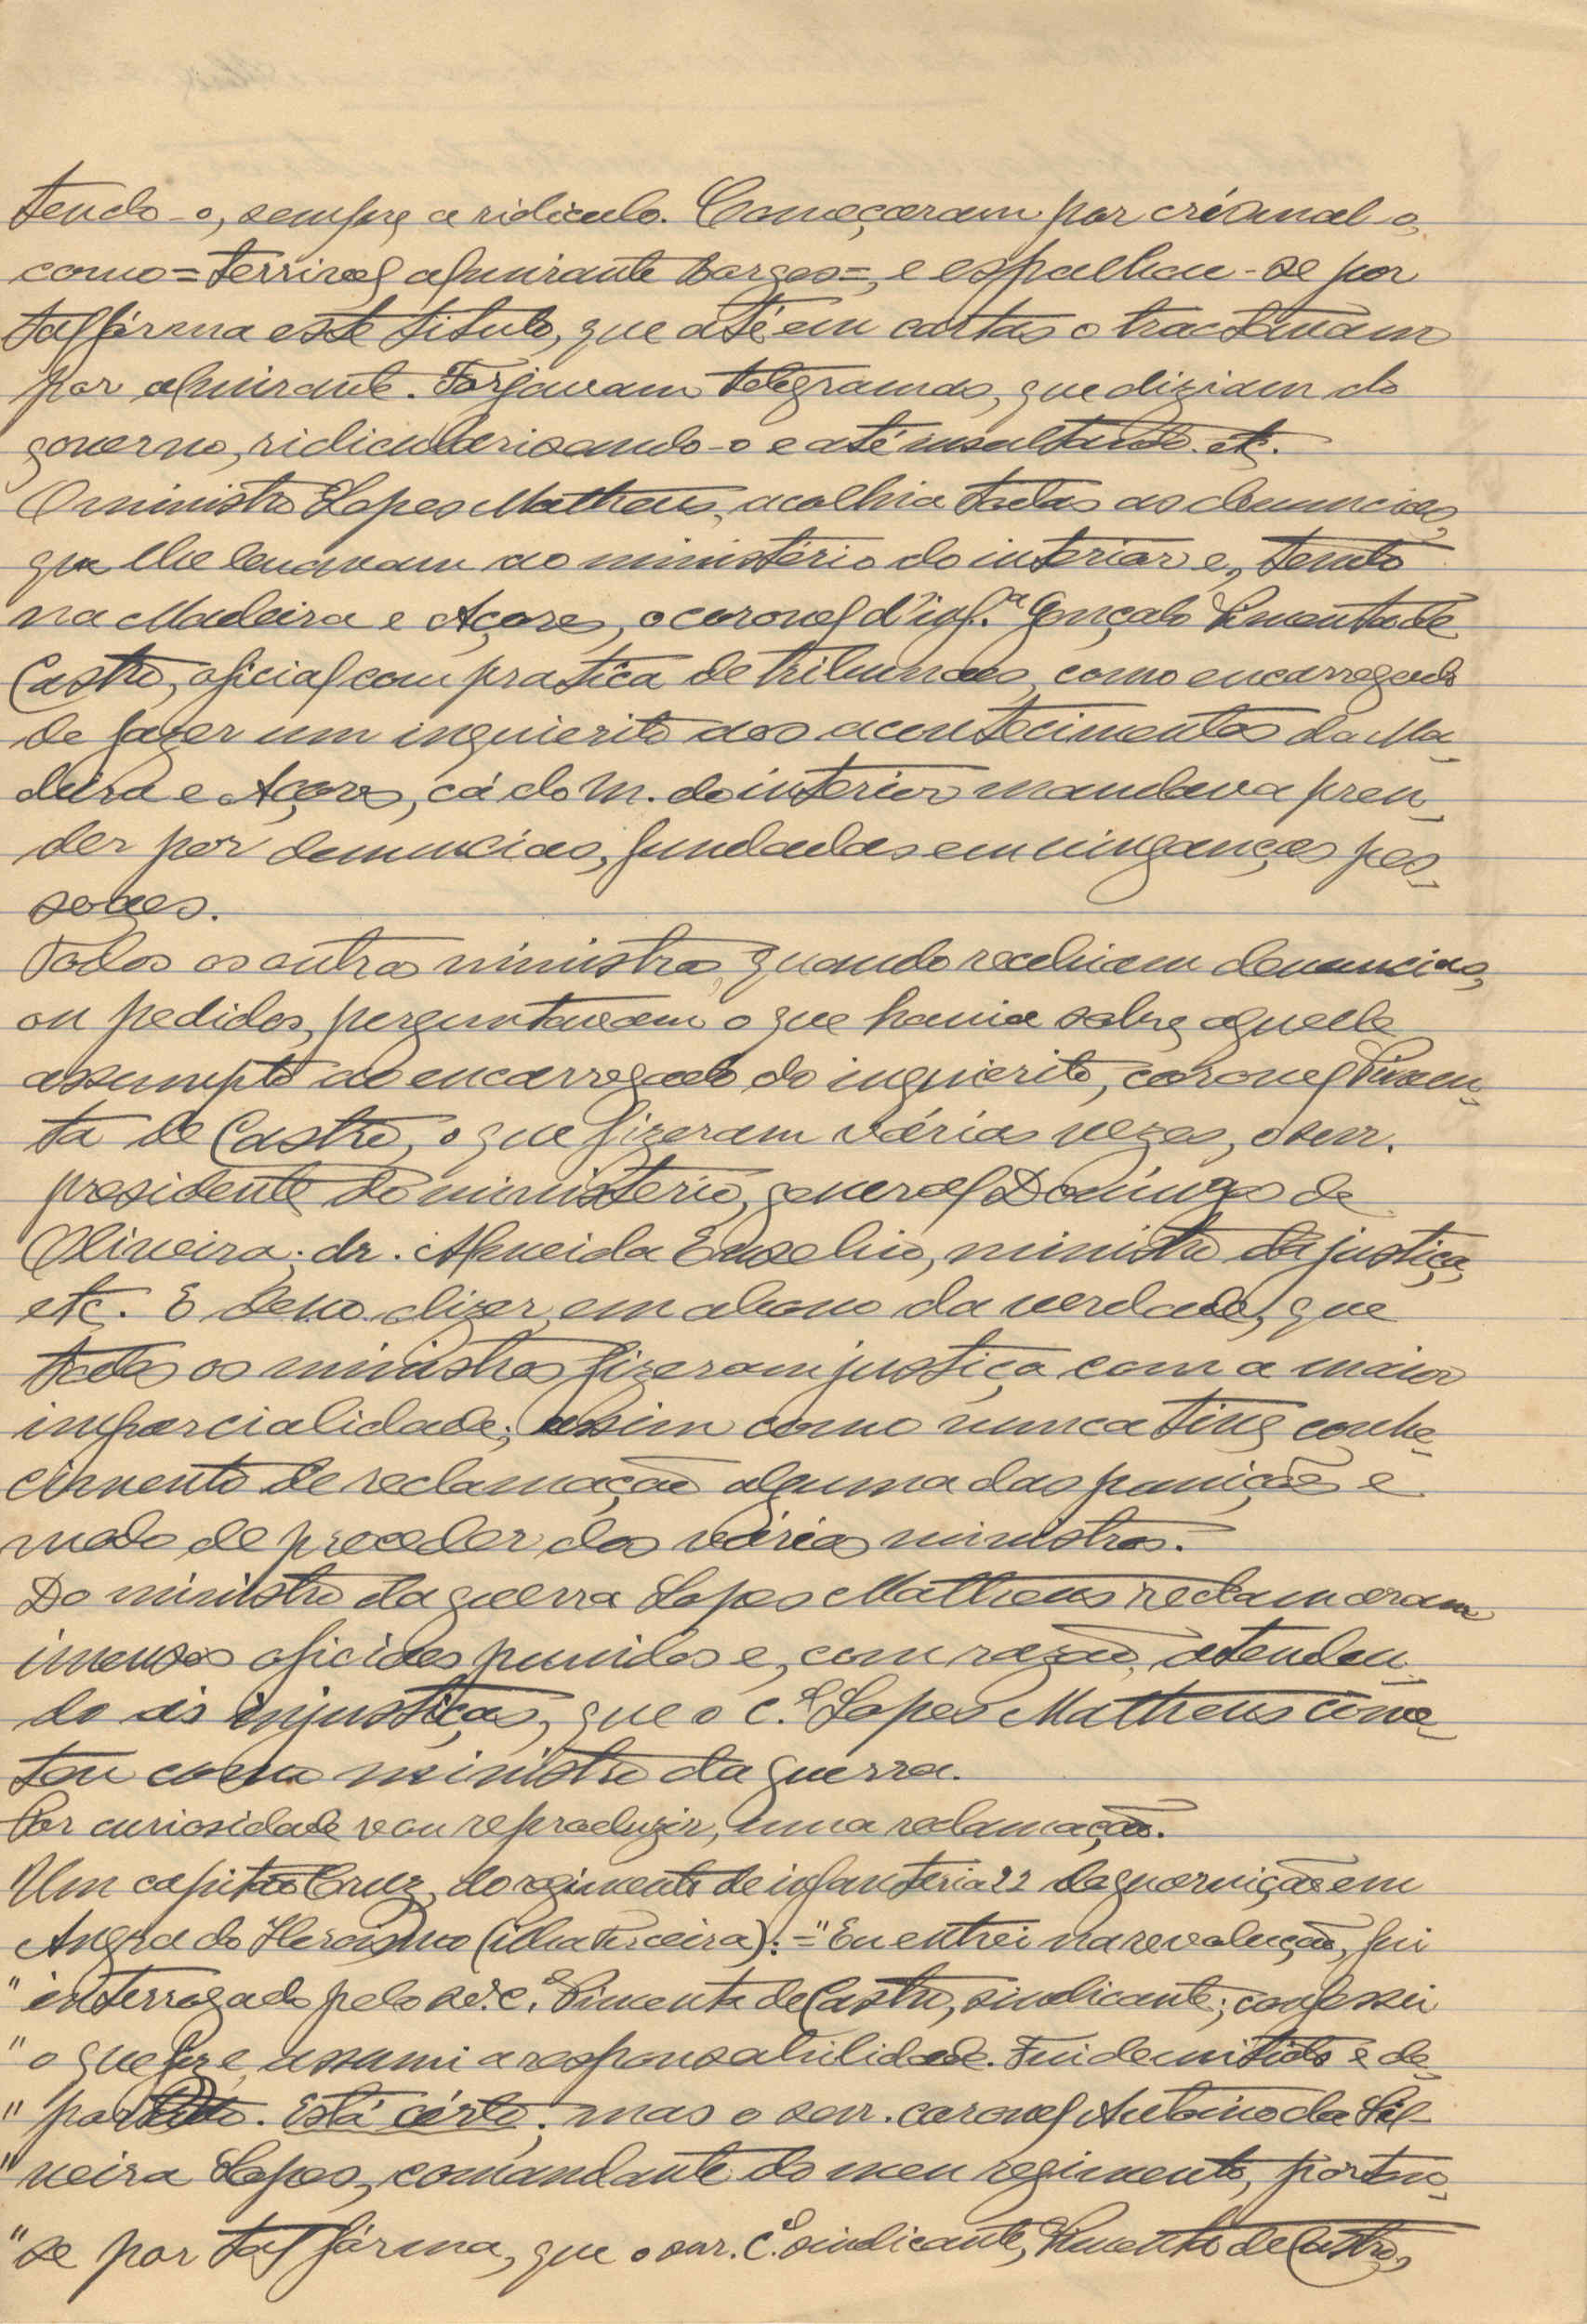 tendo-o, sempre a ridiculo. Começaram por crismal-o,
como = terrivel almirante Borges =, e espalhou-se por
tal fórma este titulo, que até em cartas o tractavam
por almirante. Forjavam telegramas, que diziam do
governo, ridicularisando-o e até insultando. etc.
O ministro Lopes Matheus, acolhia todas as denuncias,
que lhe levavam ao ministério do interior e, tendo
na Madeira e Açores, o coronel d'inf.ª Gonçalo Pimenta de
Castro, oficial com pratica de tribunaes, como encarregado
de fazer um inquierito aos acontecimentos da Ma-
deira e Açores, cá do M. do interior mandava pren-
der por denuncias, fundadas em vinganças pes-
soaes.
Todos os outros ministros, quando recebiam denuncias,
ou pedidos, perguntavam o que havia sobre aquelle
assumpto ao encarregado do inquierito, coronel Pimen-
ta de Castro, o que fizeram várias vezes, o snr.
presidente do ministerio, general Domingos de
Oliveira; dr. Almeida Eusebio, ministro da justiça,
etc. E devo dizer, em abono da verdade, que
todos os ministros fizeram justiça com a maior
imparcialidade; assim como nunca tive conhe-
cimento de reclamação alguma das punições e
modo de proceder dos vários ministros.
Do ministro da guerra Lopes Matheus reclamaram
imensos oficiaes punidos e, com razão, atenden-
do ás injustiças, que o c.el Lopes Matheus come-
teu como ministro da guerra.
Por curiosidade vou reproduzir, uma reclamação.
Um capitão Cruz, do regimento de infanteria 22 da guarnição em
Angra do Heroismo (ilha terceira): = "Eu entrei na revolução, fui
" interrogado pelo sr. c.el Pimenta de Castro, sindicante; confessei
" o que fiz e assumi a responsabilidade. Fui demitido e de-
" portado. Está cérto; mas o snr. coronel da Sil-
" veira Lopes, comandante do meu regimento, portou-
" se por tal fórma, que o snr. c.el sindicante, Pimenta de Castro,